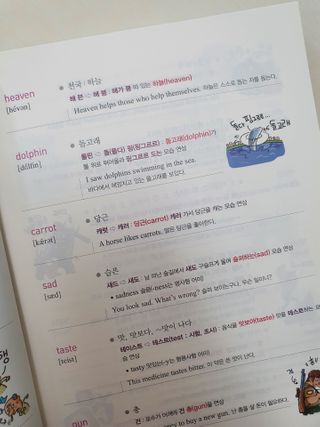 heaven
[hévən]
천국 : 하늘
해 븐 ⇨ 해 붕 : 해가 붕 떠 있는 하늘(heaven)
Heaven helps those who help themselves. 하늘은 스스로 돕는 자를 돕는다.
dolphin
[dálfin]
돌고래
돌핀 ⇨ 돌(돌다) 핑(핑그르르) : 돌고래(dolphin)가
물 위로 튀어올라 핑그르르 도는 모습 연상
I saw dolphins swimming in the sea.
바다에서 헤엄치고 있는 돌고래를 보았다.
돌다 핑그르르...
돌고래
carrot
[kǽrət]
당근
캐럿 ⇨ 캐러 : 당근(carrot) 캐러 가서 당근을 캐는 모습 연상
A horse likes carrots. 말은 당근을 좋아한다.
sad
[sæd]
슬픈
새드 ⇨ 새도 : 날 떠난 슬픔에 새도 구슬프게 울며 슬퍼하는(sad) 모습 연상
• sadness 슬픔(-ness는 명사형 어미)
You look sad. What's wrong? 슬퍼 보이는구나. 무슨 일이니?
taste
[teist]
맛, 맛보다, ~맛이 나다
테이스트 ⇨ 테스트(test : 시험, 조사) : 음식을 맛보아(taste) 맛을 테스트하는 모
습 연상
• tasty 맛있는(-y는 형용사형 어미)
This medicine tastes bitter. 이 약은 쓴 맛이 난다.
gun
총
건 : 포수가 어깨에 건 총(gun)을 연상
money to buy a new gun. 난 총을 살 돈이 필요하다.